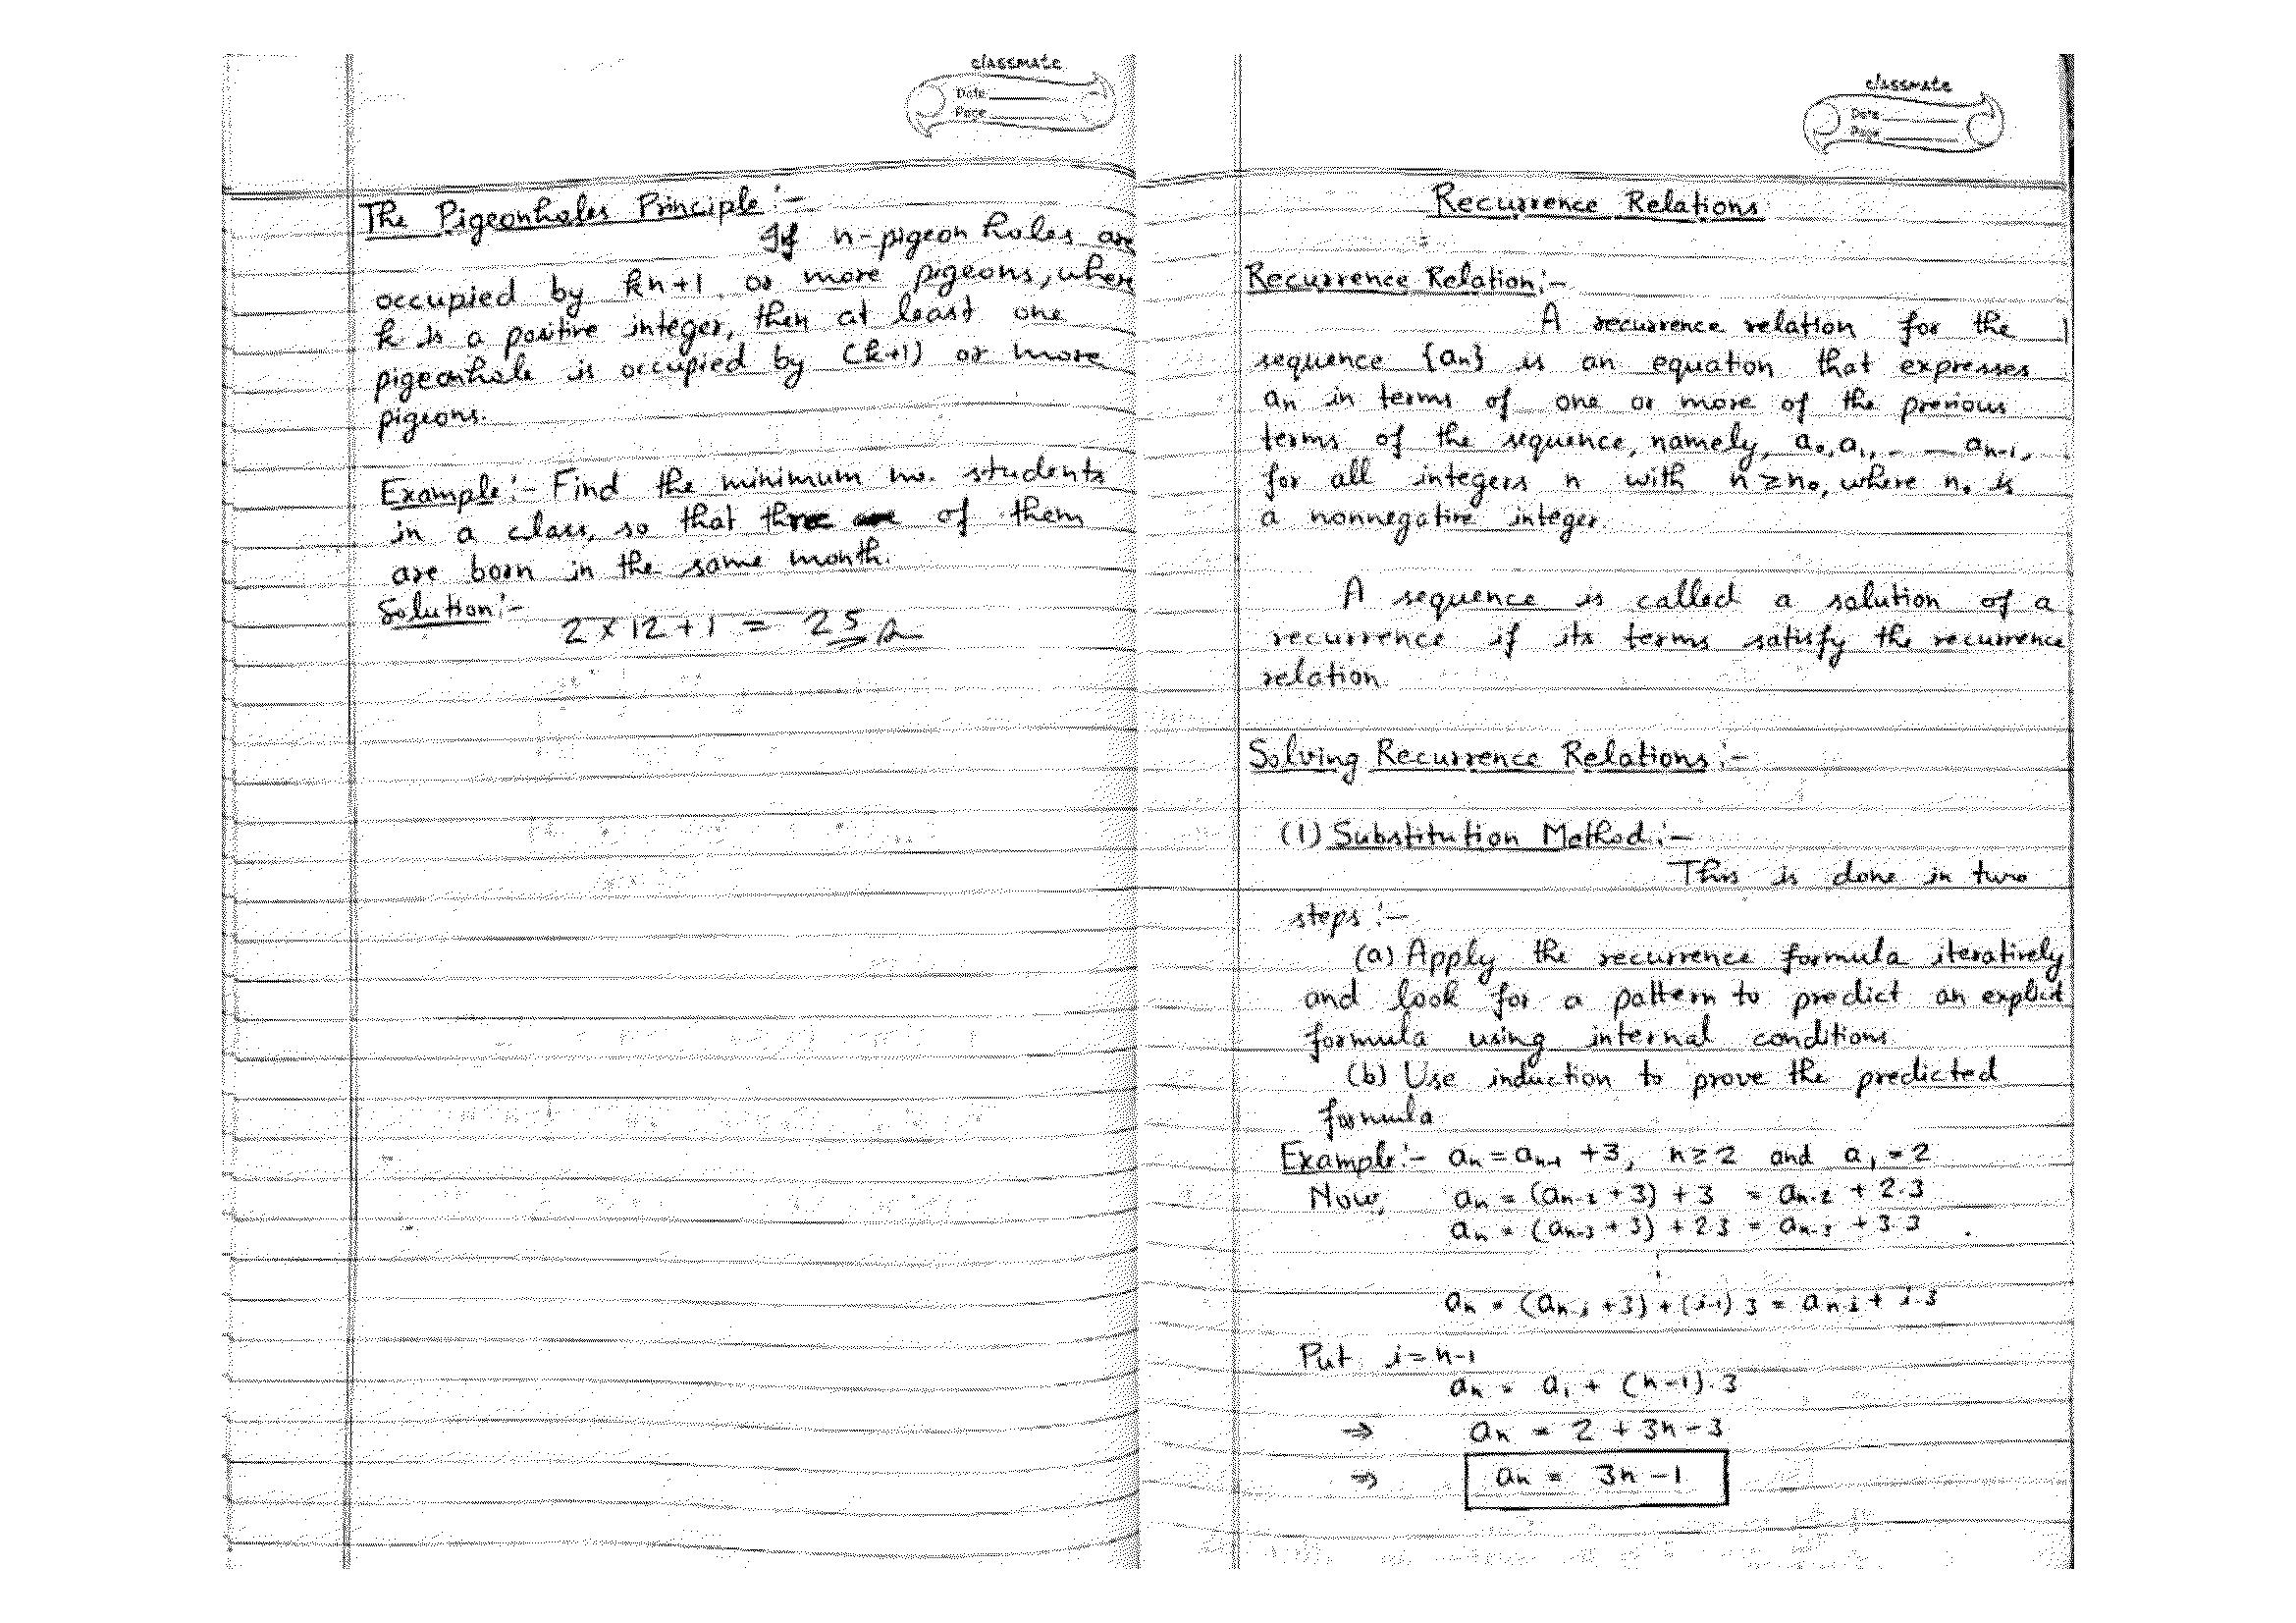 classmate
Date
Page
The Pigeonholes Principle :-
If n-pigeon holes are
occupied by kn+1 or more pigeons, where
k is a positive integer, then at least one
pigeonhole is occupied by (k+1) or more
pigeons.
Example :- Find the minimum no. students
in a class, so that three of them
are born in the same month.
Solution :-
2 × 12 + 1 = 25
classmate
Date
Page
Recurrence Relations
Recurrence Relation :-
A recurrence relation for the
sequence {aₙ} is an equation that expresses
aₙ in terms of one or more of the previous
terms of the sequence, namely, a₀, a₁, - — aₙ₋₁,
for all integers n with n ≥ n₀, where n₀ is
a nonnegative integer.
A sequence is called a solution of a
recurrence if its terms satisfy the recurrence
relation.
Solving Recurrence Relations :-
(1) Substitution Method :-
This is done in two
steps :-
(a) Apply the recurrence formula iteratively
and look for a pattern to predict an explicit
formula using internal conditions.
(b) Use induction to prove the predicted
formula
Example :- aₙ = aₙ₋₁ + 3, n ≥ 2 and a₁ = 2
Now, aₙ = (aₙ₋₂ + 3) + 3 = aₙ₋₂ + 2·3
aₙ = (aₙ₋₃ + 3) + 2·3 = aₙ₋₃ + 3·3
⋮
aₙ = (aₙ₋ᵢ + 3) + (i-1)·3 = aₙ₋ᵢ + i·3
Put i = n-1
aₙ = a₁ + (n-1)·3
⇒ aₙ = 2 + 3n - 3
⇒ aₙ = 3n - 1